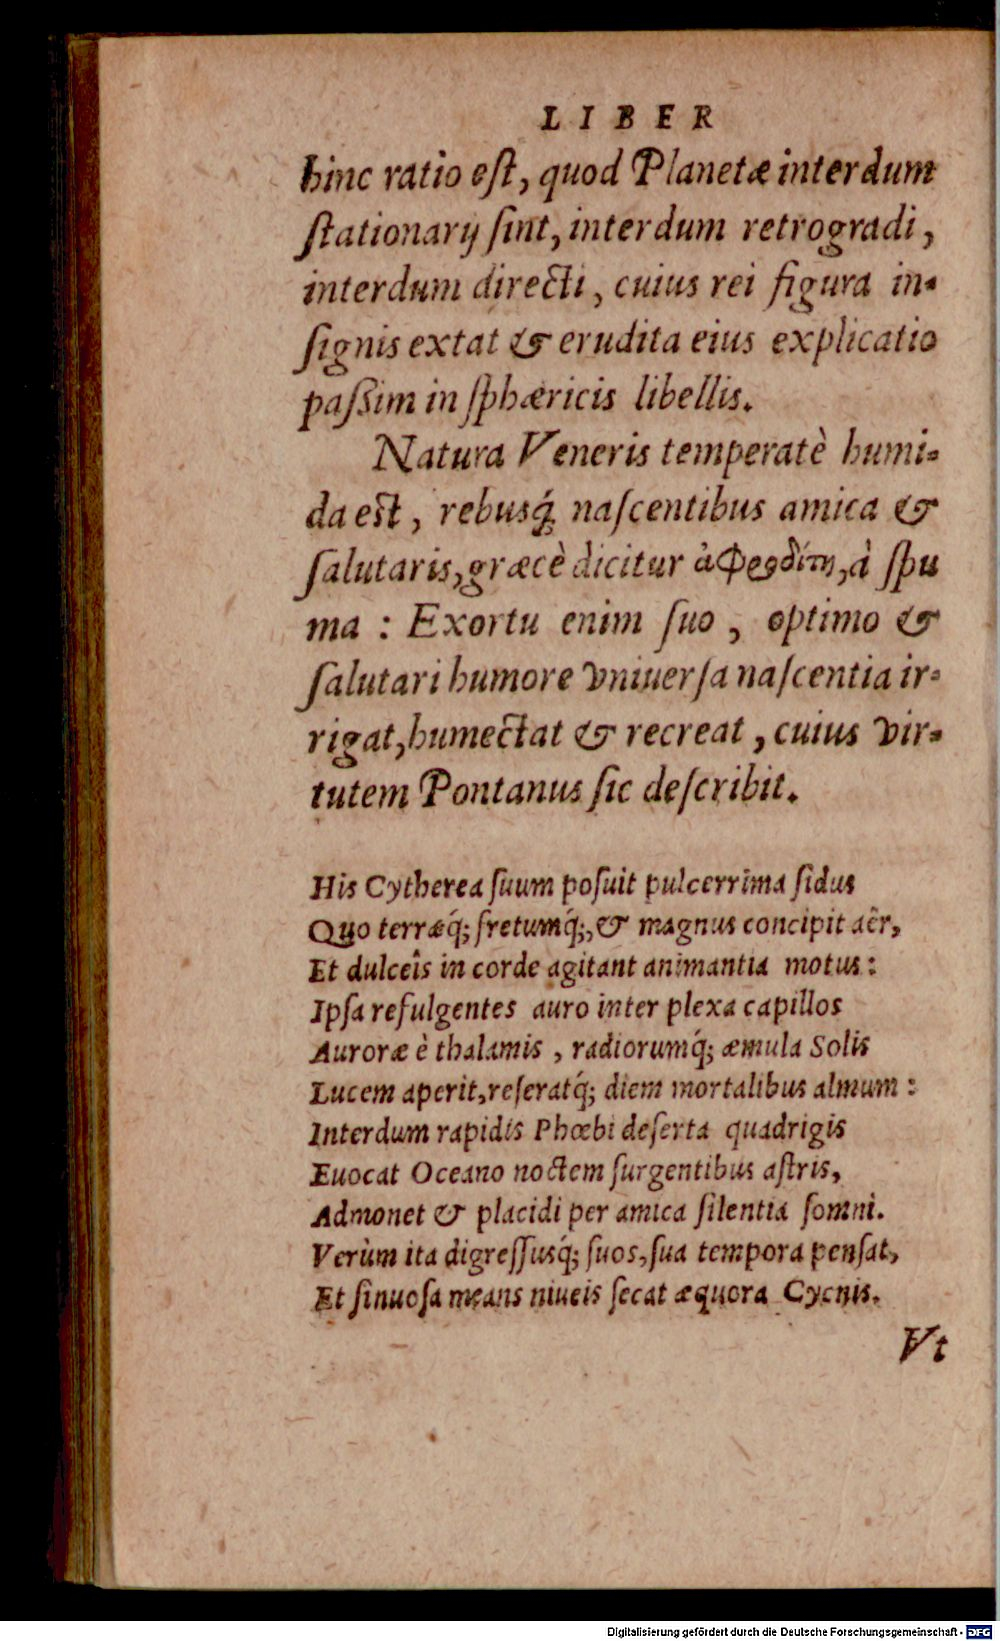 LIBER
hinc ratio eſt, quod Planetæ interdum
ſtationarij ſint, interdum retrogradi,
interdum directi, cuius rei figura in-
ſignis extat & erudita eius explicatio
paſsim in ſphæricis libellis.
Natura Veneris temperatè humi-
da est, rebusq́; naſcentibus amica &
ſalutaris, græcè dicitur ἀφροδίτη, à ſpu
ma : Exortu enim ſuo, optimo &
ſalutari humore vniuerſa naſcentia ir-
rigat, humectat & recreat, cuius vir-
tutem Pontanus ſic deſcribit.
His Cytherea ſuum poſuit pulcerrima ſidus
Quo terræq́; fretumq́;, & magnus concipit aër,
Et dulceîs in corde agitant animantia motus:
Ipſa refulgentes auro inter plexa capillos
Auroræ è thalamis, radiorumq́; æmula Solis
Lucem aperit, reſeratq́; diem mortalibus almum:
Interdum rapidis Phœbi deſerta quadrigis
Euocat Oceano noctem ſurgentibus aſtris,
Admonet & placidi per amica ſilentia ſomni.
Verùm ita digreſſusq́; ſuos, ſua tempora penſat,
Et ſinuoſa means niueis ſecat æquora Cycnis.
Vt
Digitalisierung gefördert durch die Deutsche Forschungsgemeinschaft - DFG